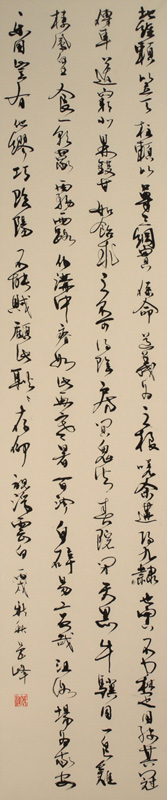 地維賴以立天柱賴以尊三綱實係命道義為之根嗟余遘陽九隸也實不力楚囚纓其冠
傳車送窮北鼎鑊甘如飴求之不可得陰房闃鬼火春院閟天黑牛驥同一皂雞
棲鳳皇食一朝蒙霧露分作溝中瘠如此再寒暑百沴自辟易哀哉沮洳場為我安
樂國豈有他繆巧陰陽不能賊顧此耿耿在仰視浮雲白